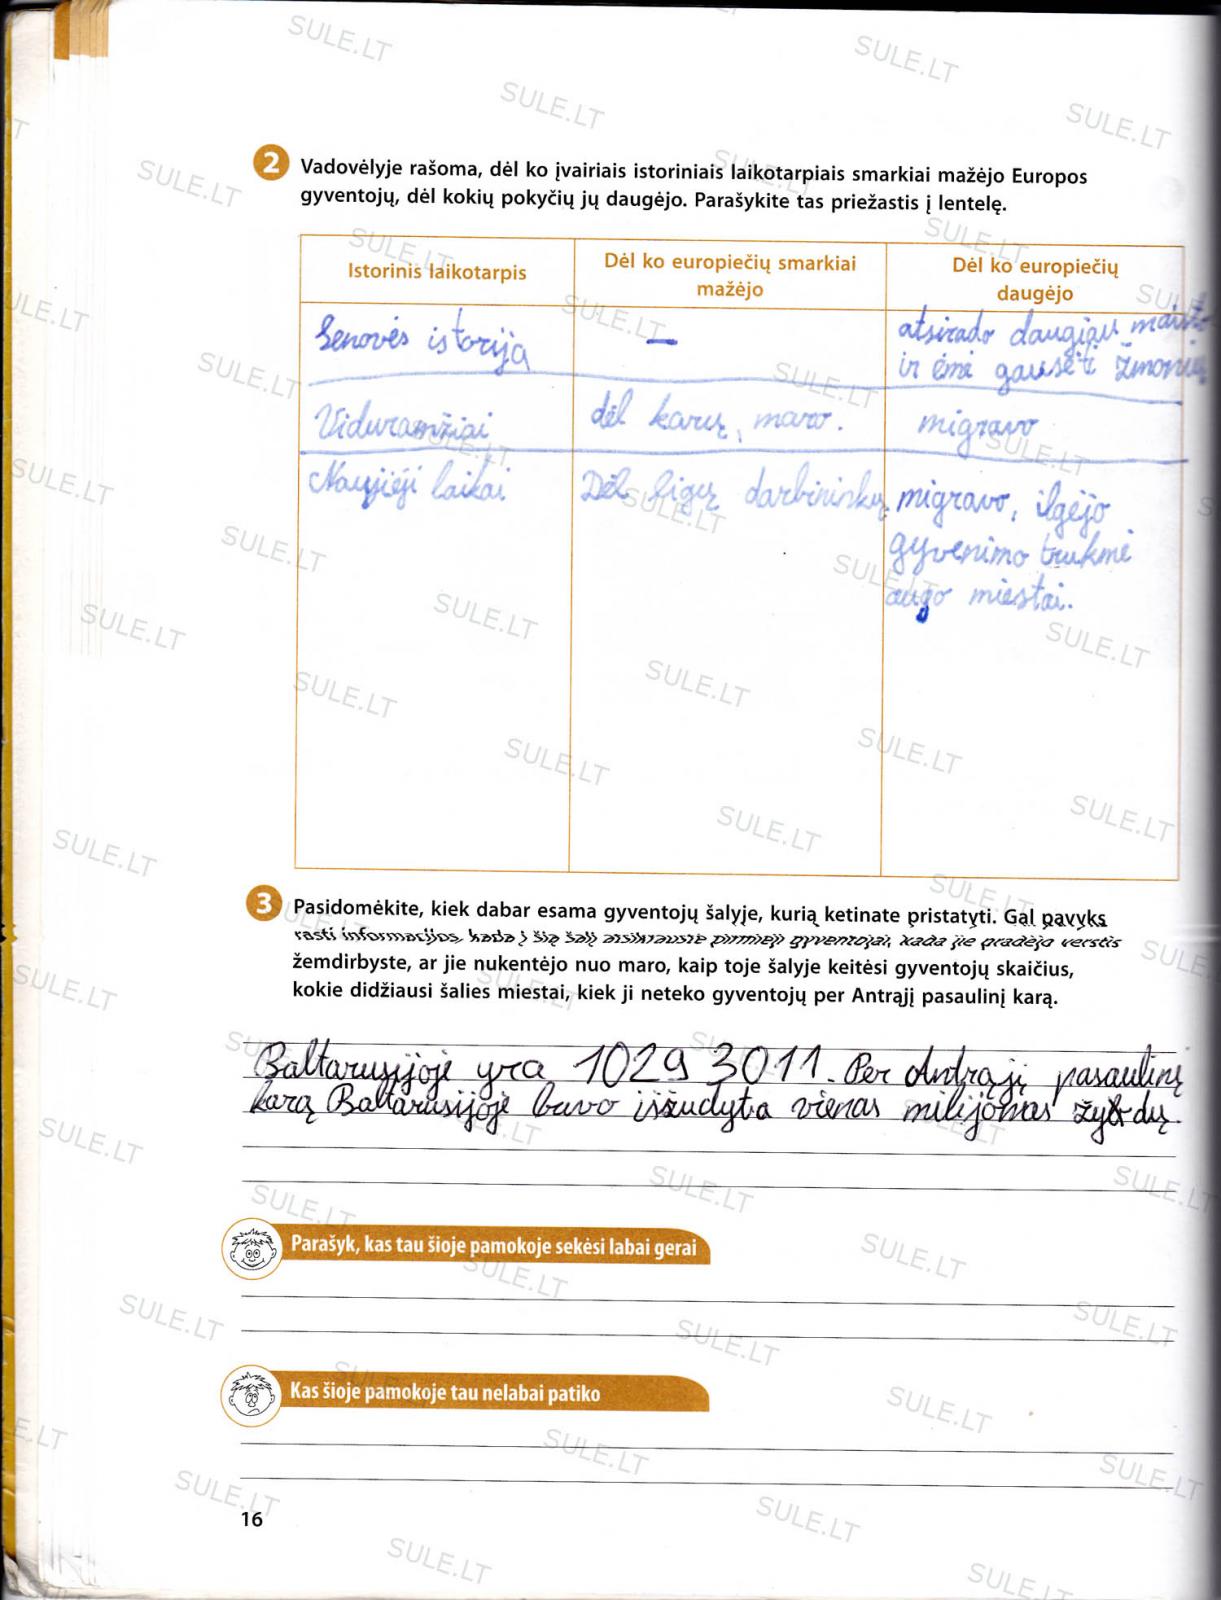 2 Vadovėlyje rašoma, dėl ko įvairiais istoriniais laikotarpiais smarkiai mažėjo Europos
gyventojų, dėl kokių pokyčių jų daugėjo. Parašykite tas priežastis į lentelę.
Istorinis laikotarpis
Dėl ko europiečių smarkiai
mažėjo
Dėl ko europiečių
daugėjo
Senovės istorija
–
atsirado daugiau maisto
ir ėmė gausėti žmonių
Viduramžiai
dėl karų, maro.
migravo
Naujieji laikai
Dėl ligų darbininkų
migravo, ilgėjo
gyvenimo trukmė
augo miestai.
3 Pasidomėkite, kiek dabar esama gyventojų šalyje, kurią ketinate pristatyti. Gal pavyks
rasti informacijos, kada į šią šalį atsikraustė pirmieji gyventojai, kada jie pradėjo verstis
žemdirbyste, ar jie nukentėjo nuo maro, kaip toje šalyje keitėsi gyventojų skaičius,
kokie didžiausi šalies miestai, kiek ji neteko gyventojų per Antrąjį pasaulinį karą.
Baltarusijoje yra 10293011. Per Antrąjį pasaulinį
karą Baltarusijoje buvo išžudyta vienas milijonas žydų.
Parašyk, kas tau šioje pamokoje sekėsi labai gerai
Kas šioje pamokoje tau nelabai patiko
16
SULE.LT